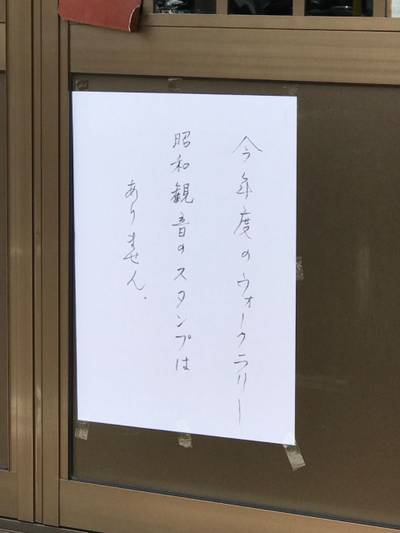 今年度のウォークラリー
昭和観音のスタンプは
ありません.